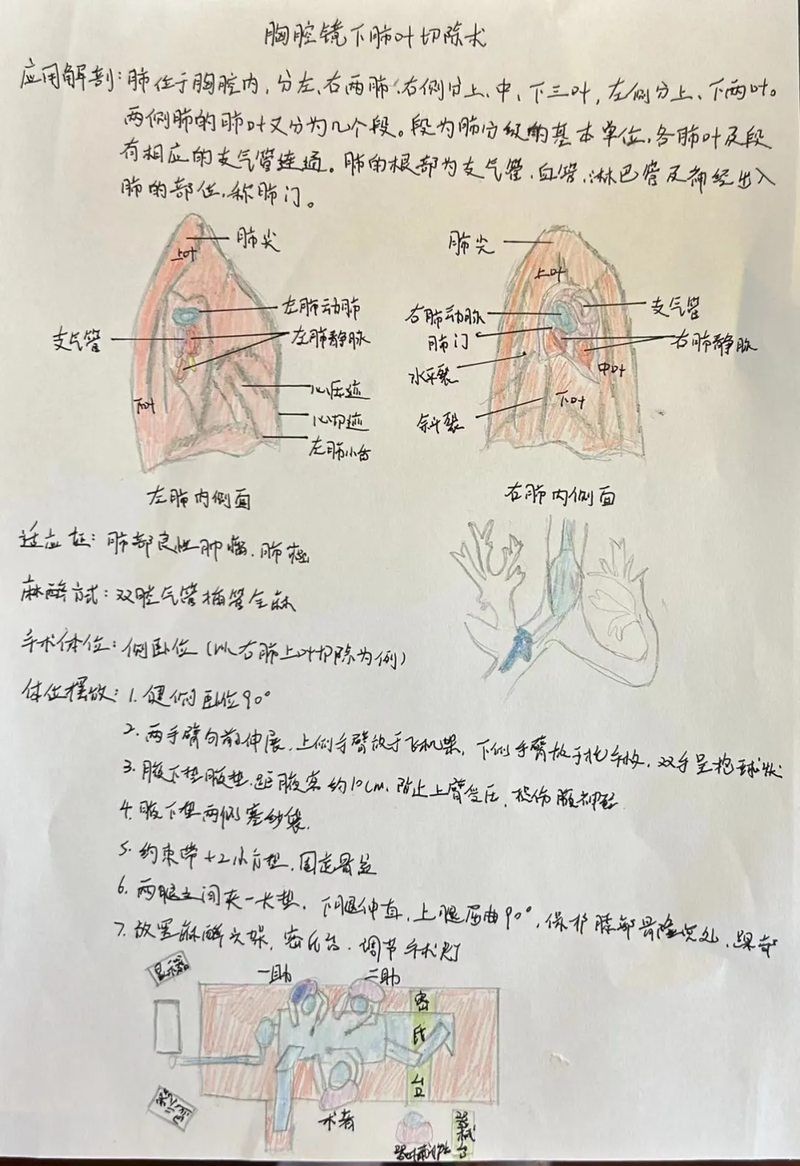 胸腔镜下肺叶切除术
应用解剖：肺位于胸腔内，分左、右两肺、右侧分上、中、下三叶，左侧分上、下两叶。
两侧肺的肺叶又分为几个段。段为肺分级的基本单位，各肺叶及段
有相应的支气管连通。肺的根部为支气管、血管、淋巴管及神经出入
肺的部位，称肺门。
肺尖
上叶
左肺动脉
支气管
左肺静脉
心压迹
下叶
心切迹
左肺小舌
左肺内侧面
肺尖
上叶
支气管
右肺动脉
肺门
右肺静脉
水平裂
中叶
下叶
斜裂
右肺内侧面
适应症：肺部良性肿瘤、肺癌
麻醉方式：双腔气管插管全麻
手术体位：侧卧位（以右肺上叶切除为例）
体位摆放：1. 健侧卧位90°
2. 两手臂向前伸展，上侧手臂放于飞机架，下侧手臂放于托手板，双手呈抱球状
3. 腋下垫腋垫，距腋窝约10cm，防止上臂受压，损伤腋神经
4. 腋下垫两侧塞纱袋
5. 约束带+2小方垫，固定骨盆
6. 两腿之间夹一长垫，下腿伸直，上腿屈曲90°，保护膝部骨隆突处，踝部
7. 放置麻醉头架，密氏台，调节手术灯
显示器
一助
二助
密氏台
显示器
术者
器械台